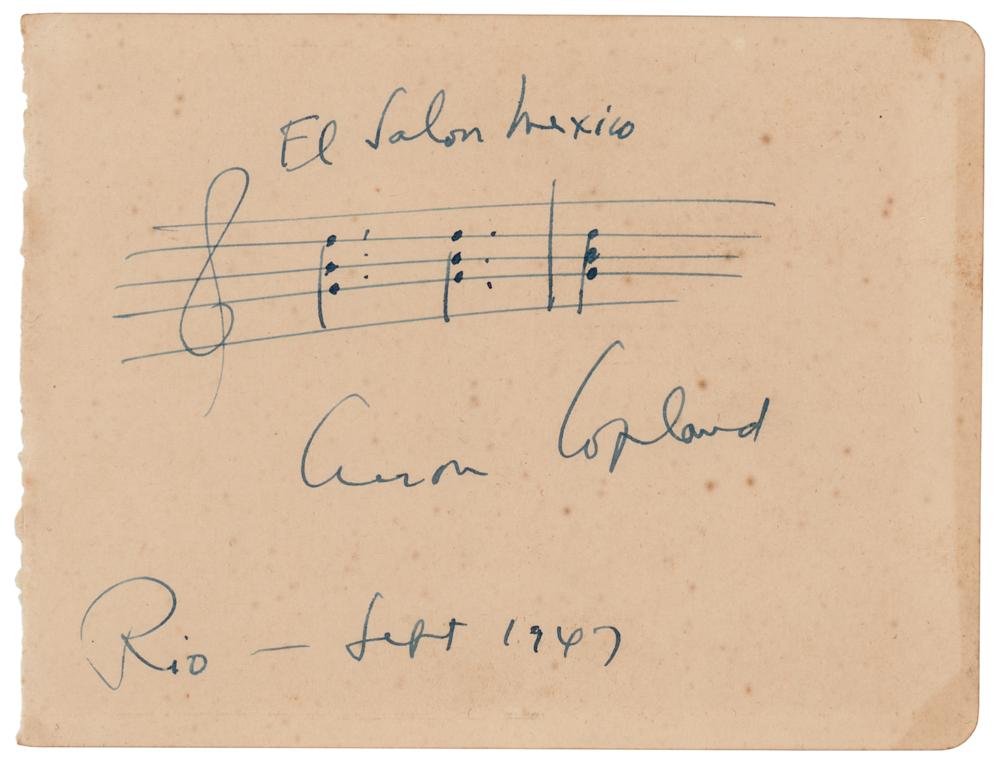 El Salon Mexico
Aaron Copland
Rio — Sept 1947